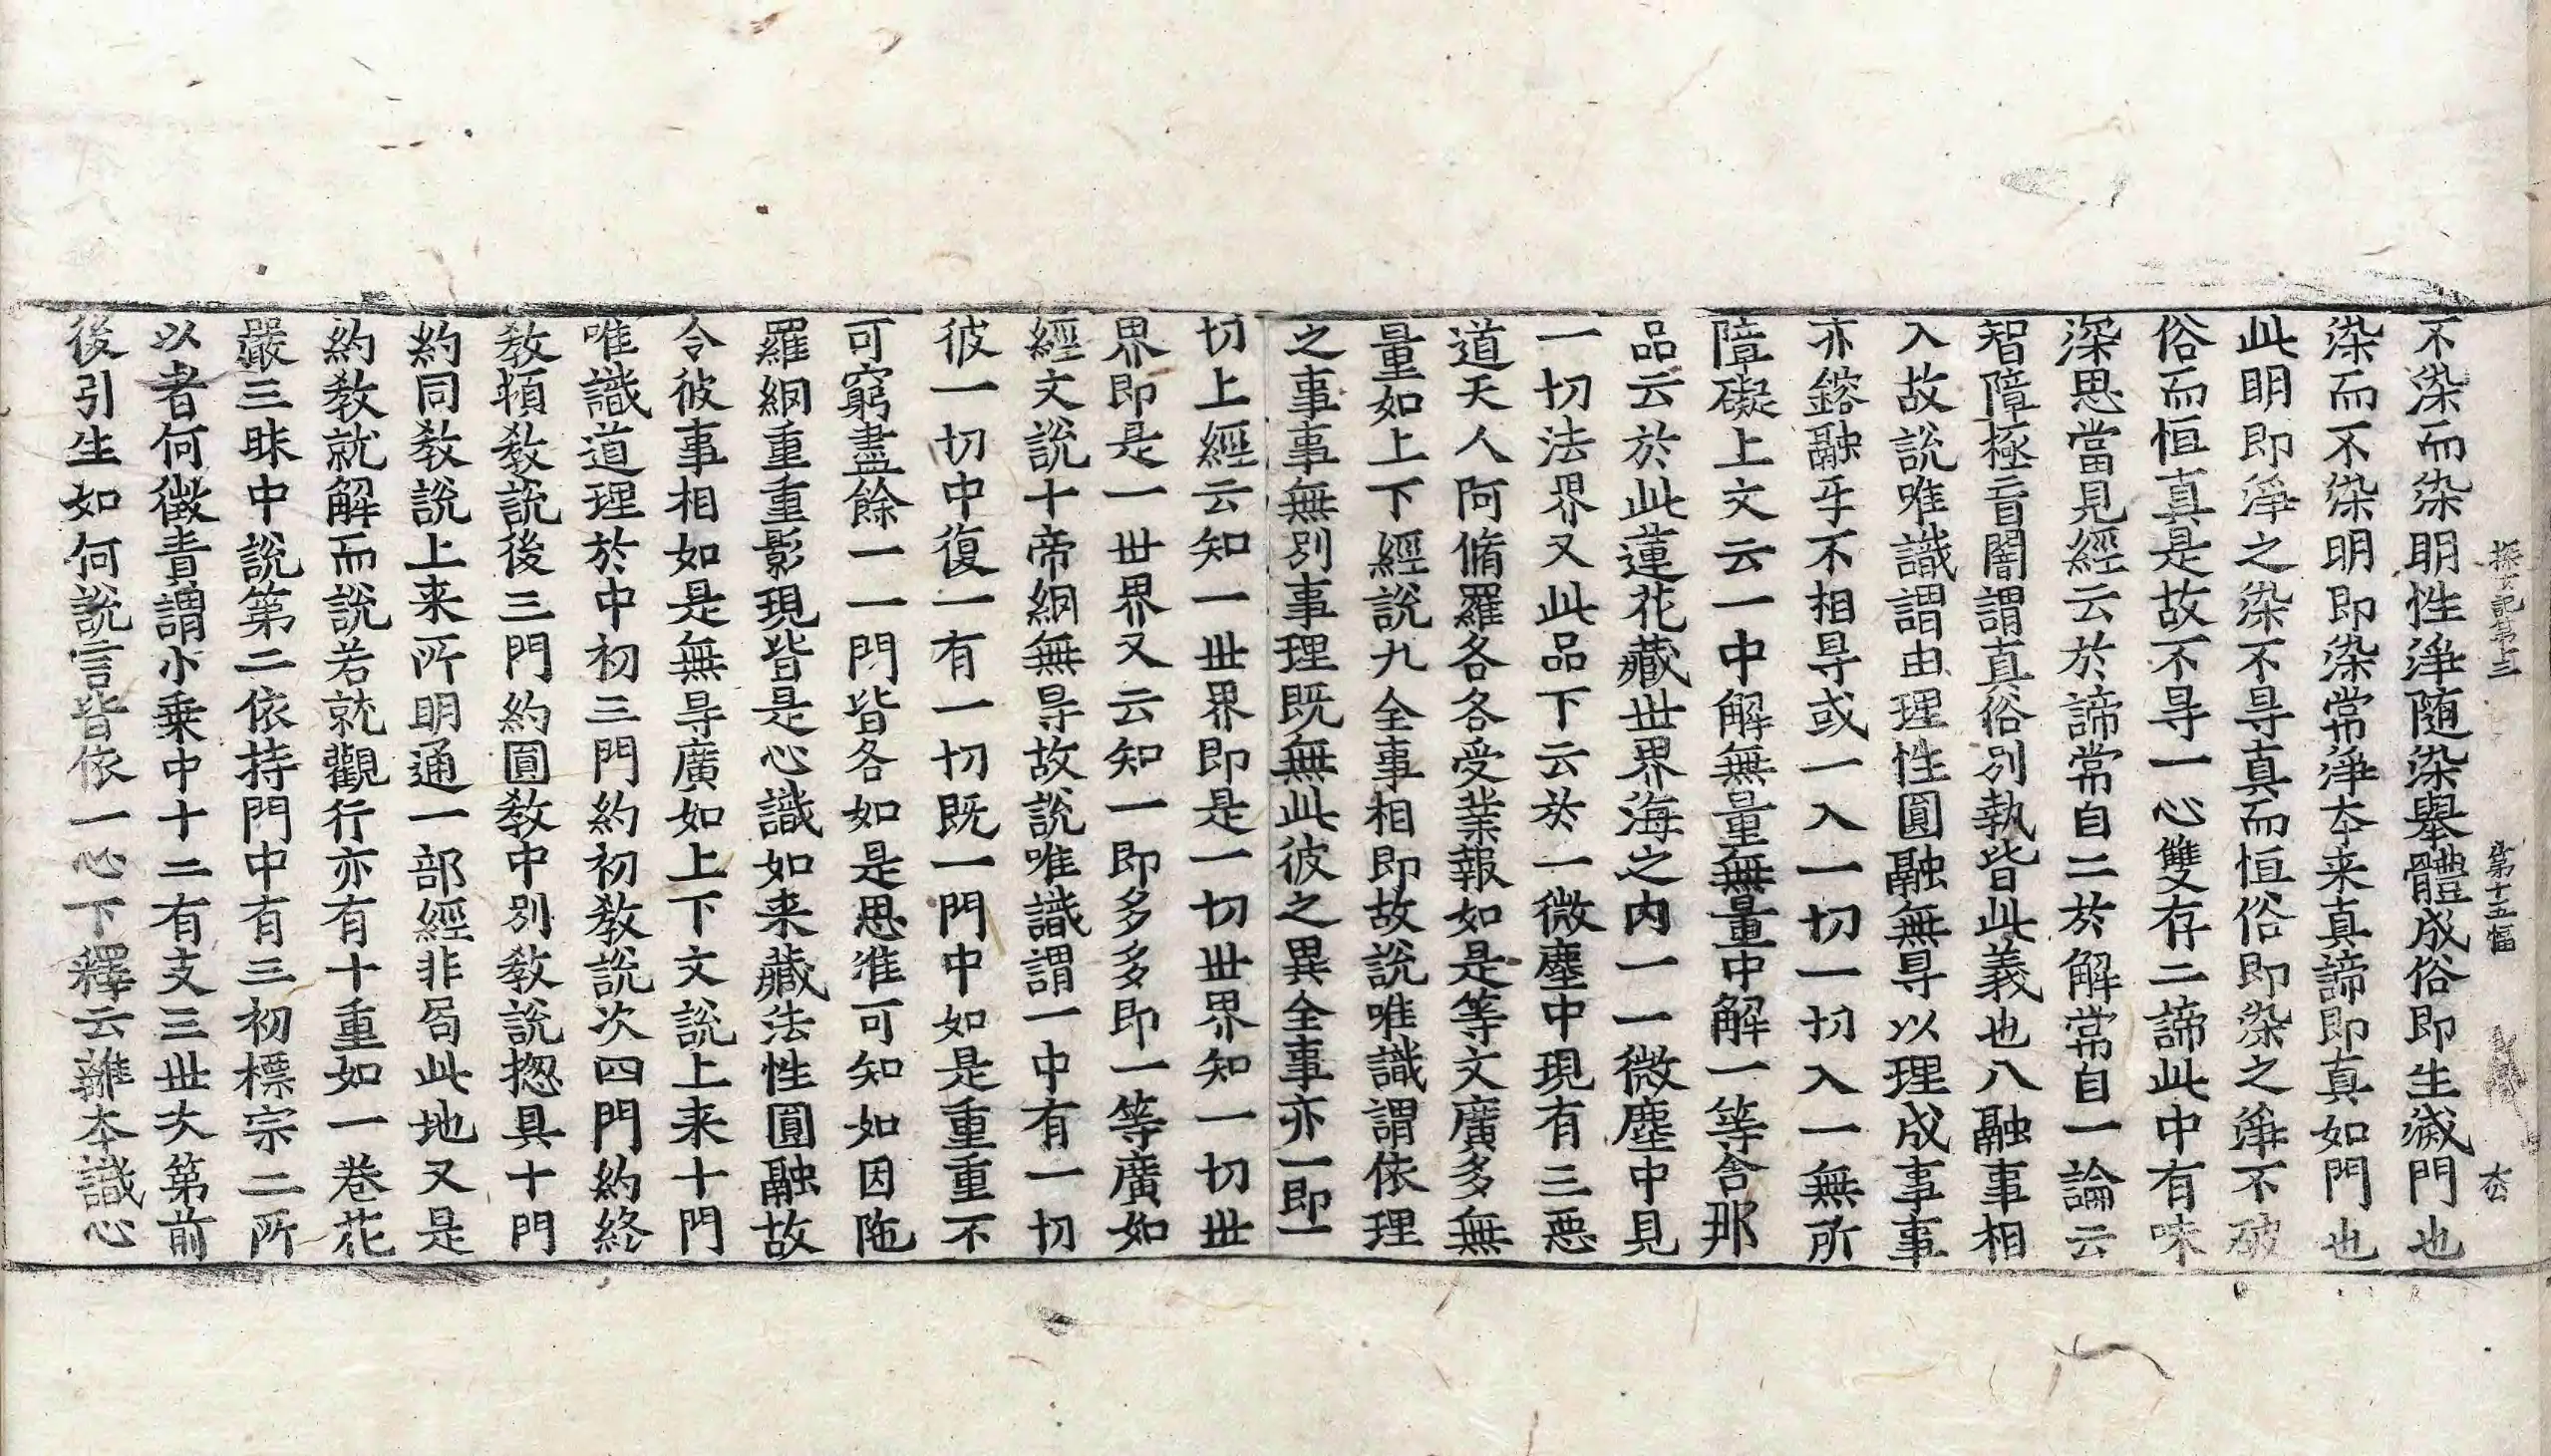 探玄記第十三 第十五幅 夳
不染而染明性淨隨染舉體成俗即生滅門也
染而不染明即染常淨夲来真諦即真如門也
此明即淨之染不㝵真而恒俗即染之淨不破
俗而恒真是故不㝵一心雙存二諦此中有味
深思當見經云於諦常自二於解常自一論云
智障極盲闇謂真俗別執皆此義也八融事相
入故說唯識謂由理性圓融無㝵以理成事事
亦鎔融㸦不相㝵或一入一切一切入一無所
障礙上文云一中解無量無量中解一等舎那
品云於此蓮花藏世界海之内一一微塵中見
一切法界又此品下云於一微塵中現有三惡
道天人阿脩羅各各受業報如是等文廣多無
量如上下經說九全事相即故說唯識謂依理
之事事無別事理既無此彼之異全事亦一即一
切上經云知一世界即是一切世界知一切世
界即是一世界又云知一即多多即一等廣如
經文說十帝網無㝵故說唯識謂一中有一切
彼一切中復一有一切既一門中如是重重不
可窮盡餘一一門皆各如是思准可知如因陁
羅網重重影現皆是心識如来藏法性圓融故
令彼事相如是無㝵廣如上下文說上来十門
唯識道理於中初三門約初教說次四門約終
教頓教說後三門約圓教中別教說揔具十門
約同教說上来所明通一部經非局此地又是
約教就解而說若就觀行亦有十重如一巻花
嚴三昧中說第二依持門中有三初標宗二所
以者何徵責謂小乗中十二有支三世次第前
後引生如何說言皆依一心下釋云雖夲識心